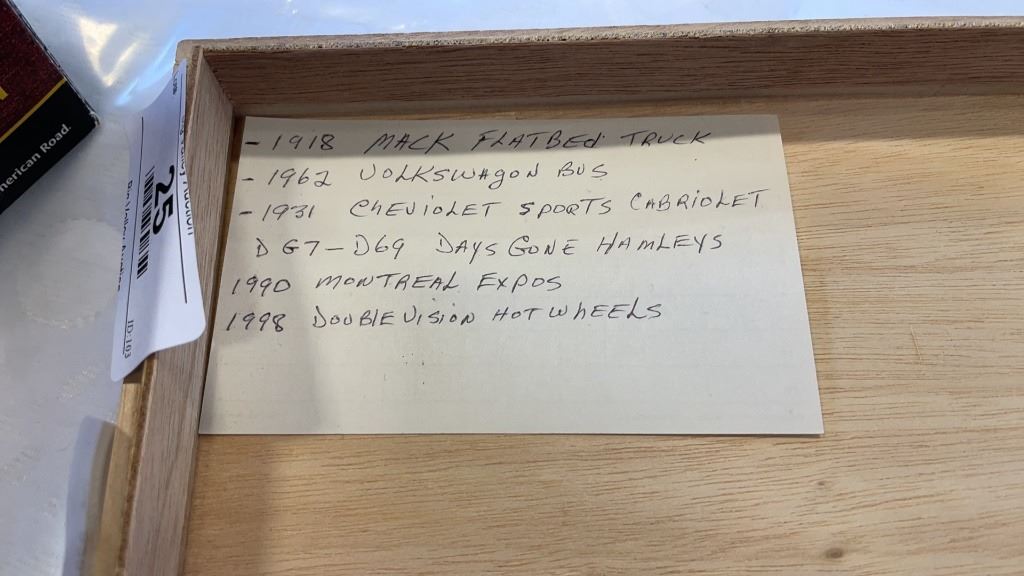 - 1918 MACK FLATBED TRUCK
- 1962 VOLKSWAGON BUS
- 1931 CHEVIOLET SPORTS CABRIOLET
DG7-D69 DAYS GONE HAMLEYS
1990 MONTREAL EXPOS
1998 DOUBLE VISION HOT WHEELS
25
ID:103
American Road